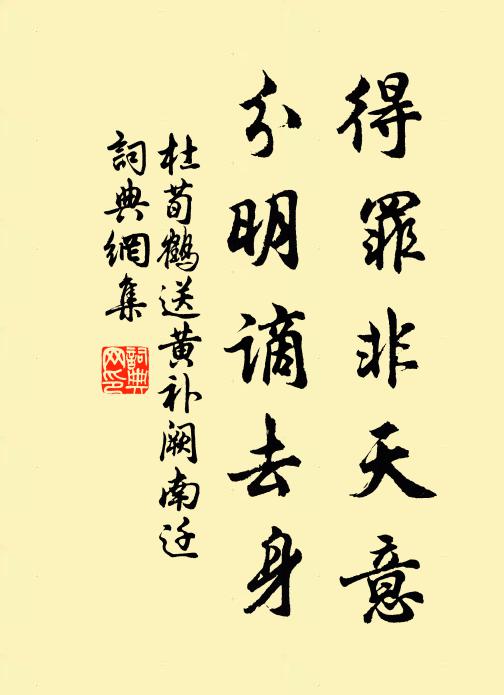 得罪非天意
分明謫去身
杜荀鶴送黄补阙南迁
詞典網集
詞典
网印